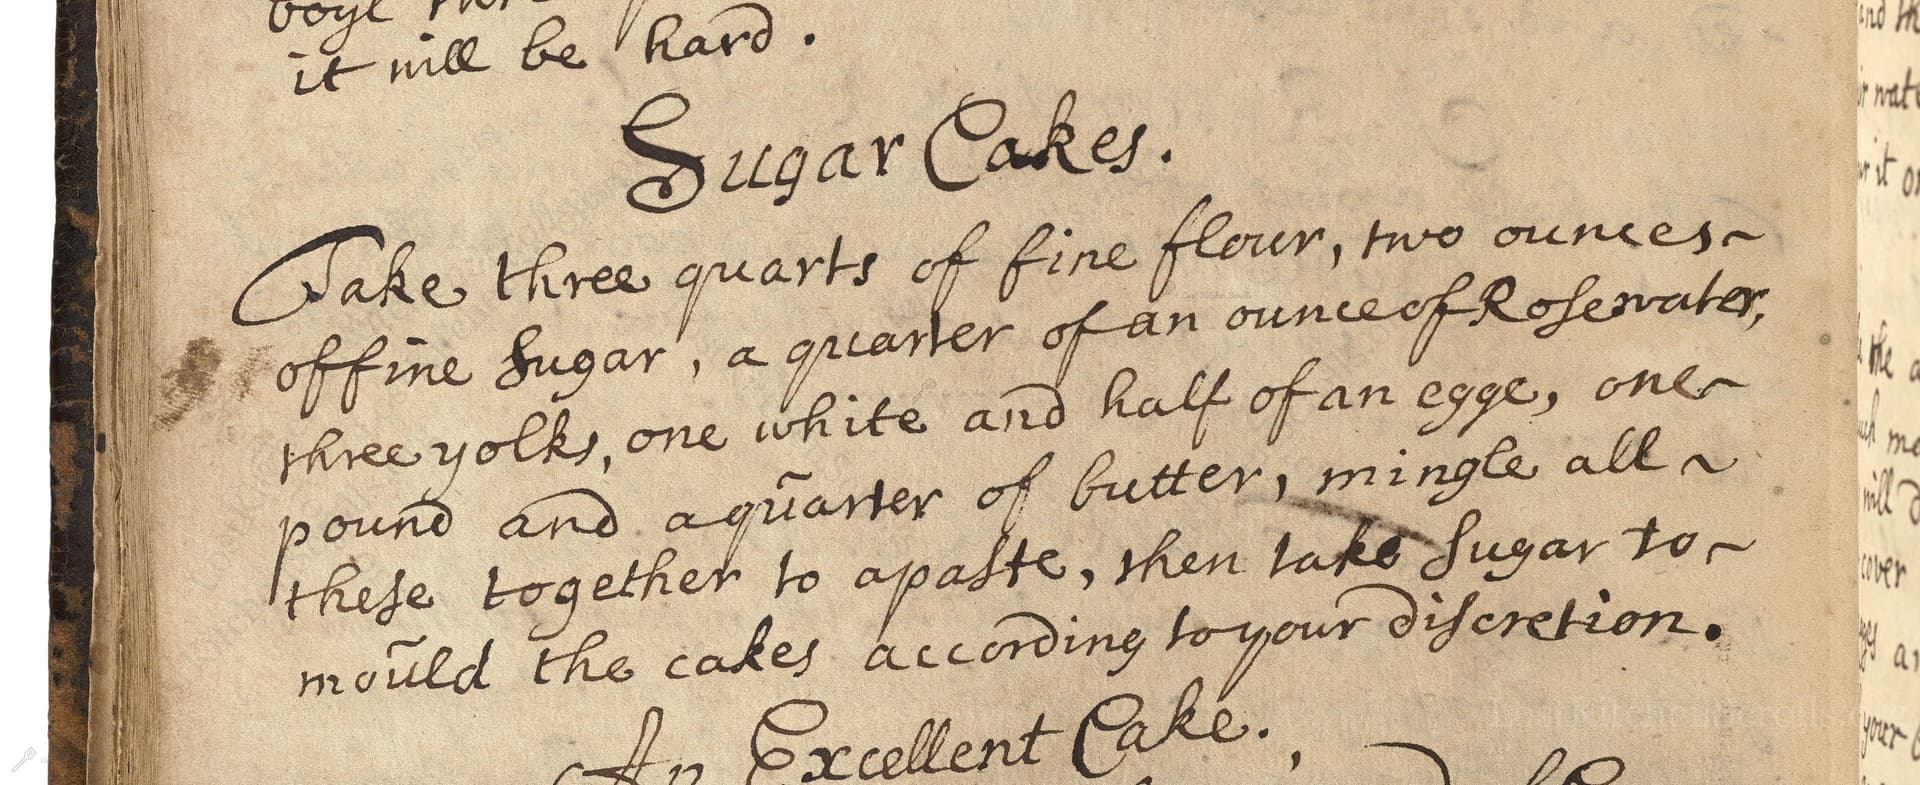 boyl
it will be hard.
Sugar Cakes.
Take three quarts of fine flour, two ounces~
of fine sugar, a quarter of an ounce of Rosewater,
three yolks, one white and half of an egge, one~
pound and a quarter of butter, mingle all ~
these together to a paste, then take sugar to~
mould the cakes according to your discretion.
An Excellent Cake.